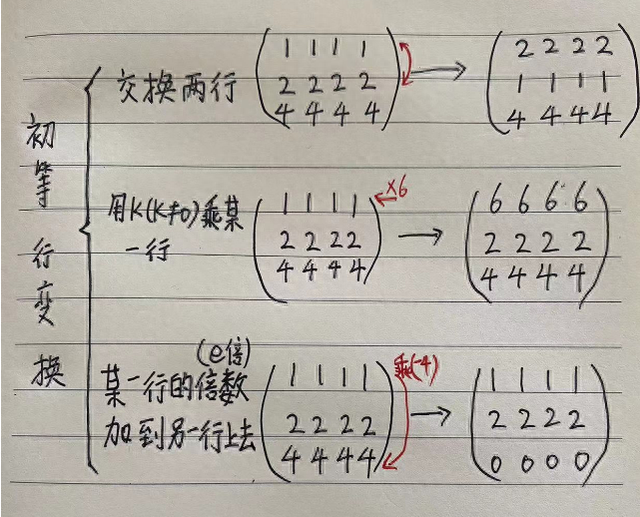 初等行变换
交换两行
1 1 1 1
2 2 2 2
4 4 4 4
2 2 2 2
1 1 1 1
4 4 4 4
用K(K≠0)乘某
一行
1 1 1 1
2 2 2 2
4 4 4 4
×6
6 6 6 6
2 2 2 2
4 4 4 4
(e倍)
某一行的倍数
加到另一行上去
1 1 1 1
2 2 2 2
4 4 4 4
乘(-4)
1 1 1 1
2 2 2 2
0 0 0 0